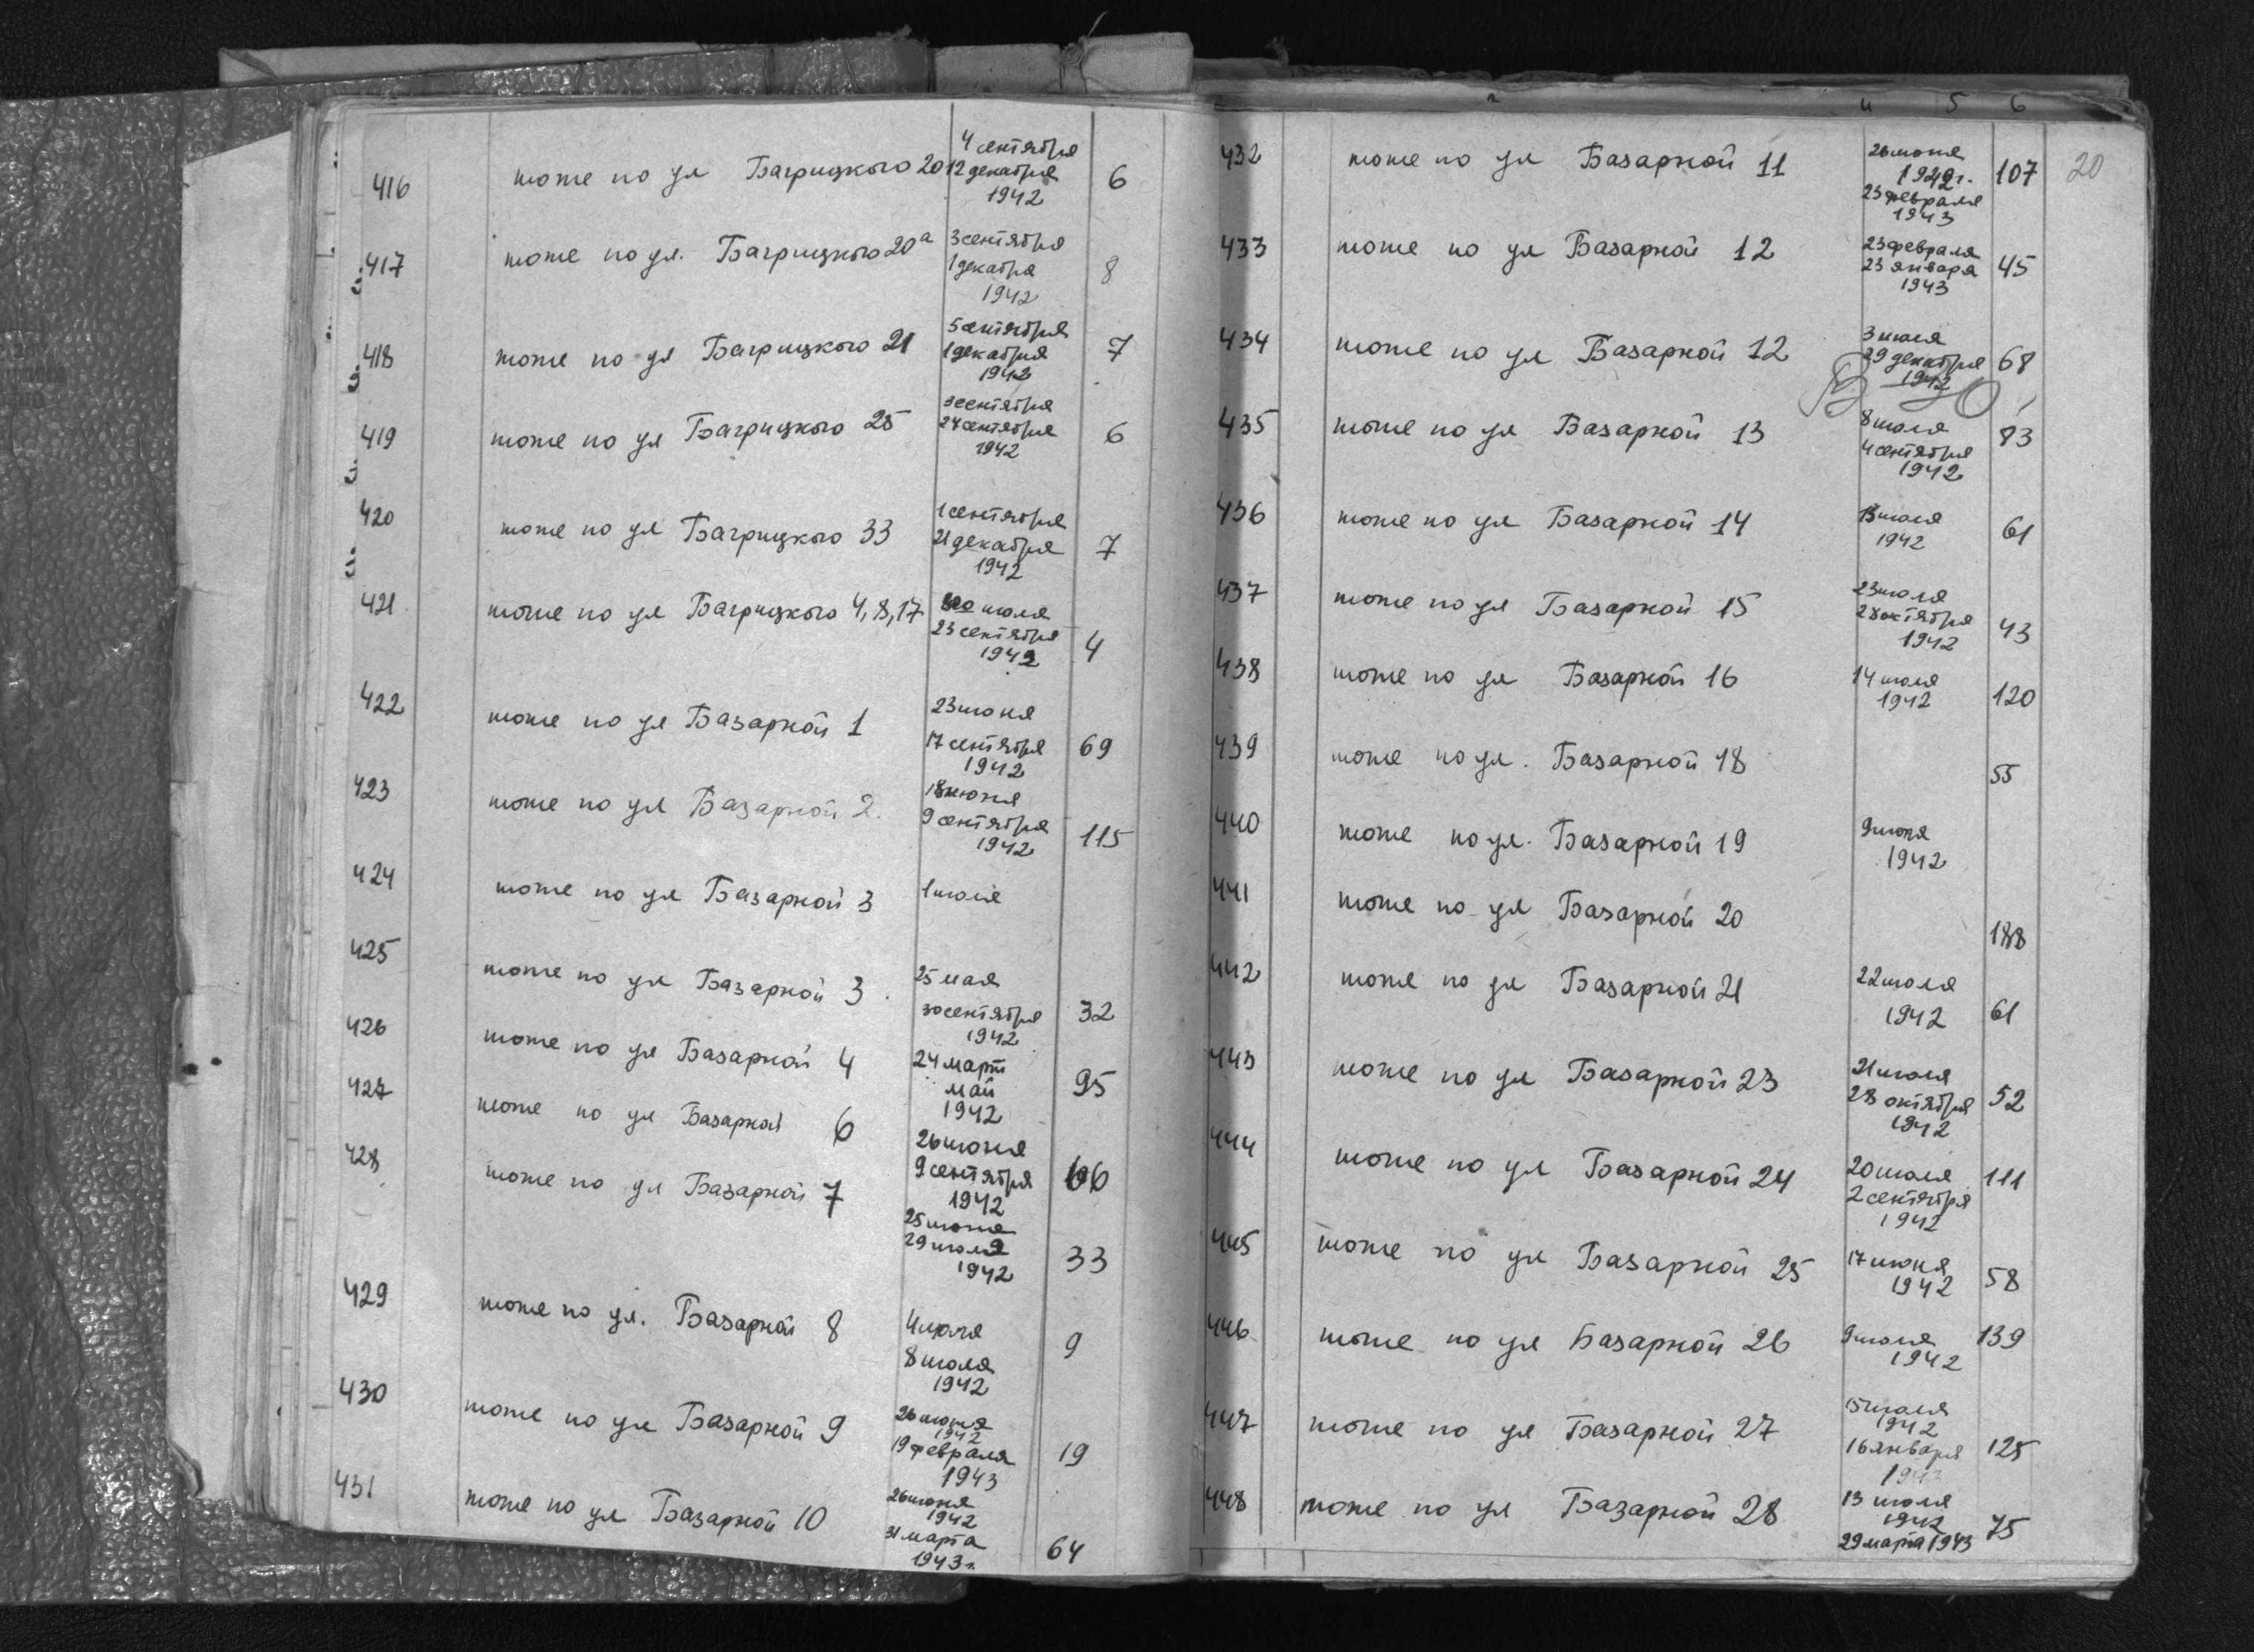 416 тоже по ул Багрицкого 20 4 сентября
12 декабря 6
1942
417 тоже по ул. Багрицкого 20а 3 сентября
1 декабря 8
1942
418 тоже по ул Багрицкого 21 5 сентября
1 декабря 7
1942
419 тоже по ул Багрицкого 25 3 сентября
24 сентября 6
1942
420 тоже по ул Багрицкого 33 1 сентября
21 декабря 7
1942
421 тоже по ул Багрицкого 4, 8, 17 июля
23 сентября 4
1942
422 тоже по ул Базарной 1 23 июня
17 сентября 69
1942
423 тоже по ул Базарной 2. 18 июня
9 сентября 115
1942
424 тоже по ул Базарной 3 1 июля
425 тоже по ул Базарной 3. 25 мая
30 сентября 32
1942
426 тоже по ул Базарной 4 24 март
май 95
1942
427 тоже по ул Базарной 6 26 июня
9 сентября 66
1942
428 тоже по ул Базарной 7 25 июня
29 июля 33
1942
429 тоже по ул. Базарной 8 4 июля
8 июля 9
1942
430 тоже по ул Базарной 9 26 июня
1942
19 февраля 19
1943
431 тоже по ул Базарной 10 26 июня
1942
31 марта 64
1943 г.
5 6
20
432 тоже по ул Базарной 11 26 июня
1942 г. 107
23 февраля
1943
433 тоже по ул Базарной 12 23 февраля
23 января 45
1943
434 тоже по ул Базарной 12 3 июля
29 декабря 68
1942
435 тоже по ул Базарной 13 8 июля
4 сентября 83
1942
436 тоже по ул Базарной 14 13 июля
1942 61
437 тоже по ул Базарной 15 23 июля
28 октября 43
1942
438 тоже по ул Базарной 16 14 июля
1942 120
439 тоже по ул. Базарной 18 55
440 тоже по ул. Базарной 19 9 июля
1942
441 тоже по ул Базарной 20 188
442 тоже по ул Базарной 21 22 июля
1942 61
443 тоже по ул Базарной 23 21 июля
28 октября 52
1942
444 тоже по ул Базарной 24 20 июля 111
2 сентября
1942
445 тоже по ул Базарной 25 17 июня
1942 58
446 тоже по ул Базарной 26 9 июля 139
1942
447 тоже по ул Базарной 27 15 июля
1942
16 января 125
1943
448 тоже по ул Базарной 28 13 июля
1942 75
29 марта 1943